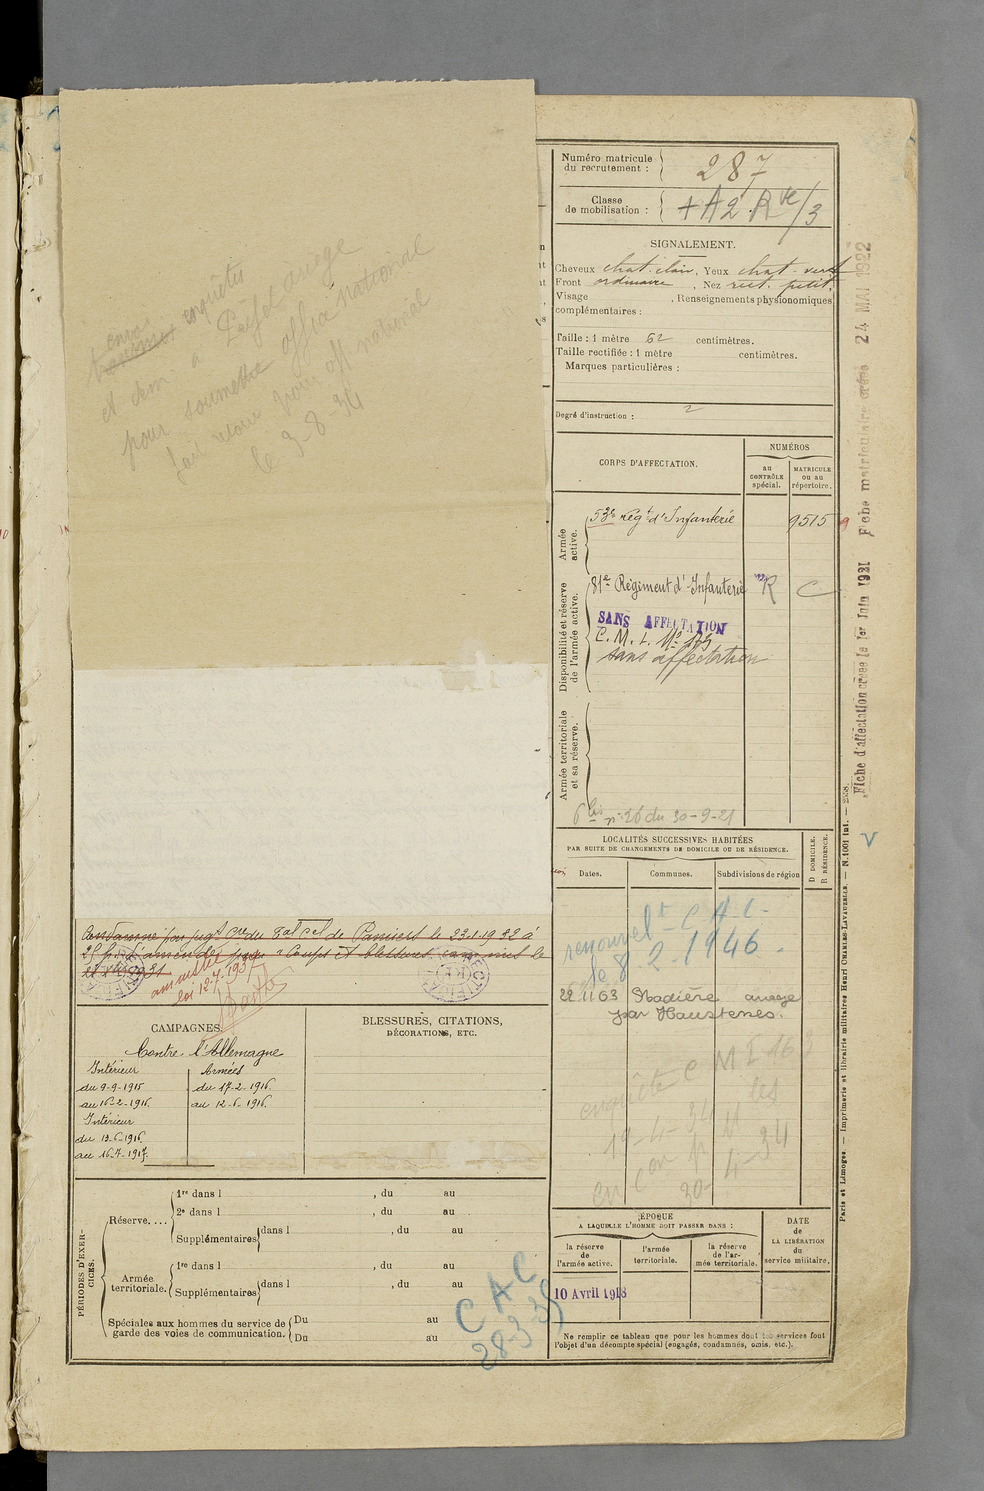 envoi
enquêtes
et dem à Préfet ariege
pour soumettre office national
fait retour pour off national
le 3-8-34
Numéro matricule
du recrutement : 287
Classe
de mobilisation :
SIGNALEMENT.
Cheveux chat. clair, Yeux chat. vert
Front ordinaire , Nez rect. petit,
Visage , Renseignements physionomiques
complémentaires :
Taille : 1 mètre 62 centimètres.
Taille rectifiée : 1 mètre centimètres.
Marques particulières :
Degré d'instruction : 2
CORPS D'AFFECTATION.
NUMÉROS
au
CONTRÔLE
spécial.
MATRICULE
ou au
répertoire.
Armée
active.
53e Régt d'Infanterie 9515
Disponibilité et réserve
de l'armée active.
81e Régiment d'Infanterie R C
SANS AFFECTATION
sans affectation
Armée territoriale
et sa réserve.
n° 26 du 30-9-21
LOCALITÉS SUCCESSIVES HABITÉES
PAR SUITE DE CHANGEMENTS DE DOMICILE OU DE RÉSIDENCE.
D DOMICILE.
R RÉSIDENCE.
Dates.
Communes.
Subdivisions de région
renouvelt C A C
le 8 2-1946
22 11 63 Stadière ariege
par Haustenes.
enquête C M I 163
19-4-34 les
30-4-34
Condamné par jugt Cre du Tal Cel de Pamiers le 23.1.1932 à
25 f. d'amende pour "Coups et blessures, commis le
22 Xbre 1931
amnistié
loi 12-7-1937
CAMPAGNES.
Contre l'Allemagne
Intérieur
du 9-9-1915
au 16-2-1916.
Intérieur
du 13-6-1916.
au 16-7-1917.
Armées
du 17-2-1916.
au 12-6-1916.
BLESSURES, CITATIONS,
DÉCORATIONS, ETC.
PÉRIODES D'EXER-
CICES.
Réserve....
1re dans l , du au
2e dans l , du au
Supplémentaires dans l , du au
Armée
territoriale.
1re dans l , du au
Supplémentaires dans l , du au
Spéciales aux hommes du service de
garde des voies de communication.
Du au
Du au
C A C
28-3-35
ÉPOQUE
A LAQUELLE L'HOMME DOIT PASSER DANS :
la réserve
de
l'armée active.
l'armée
territoriale.
la réserve
de l'ar-
mée territoriale.
DATE
de
LA LIBÉRATION
du
service militaire.
10 Avril 1918
Ne remplir ce tableau que pour les hommes dont les services font
l'objet d'un décompte spécial (engagés, condamnés, omis, etc.).
Fiche d'affectation créée le 1er Juin 1931 Fiche matriculaire créée 24 MAI 1922
Paris et Limoges. — Imprimerie et librairie militaires Henri CHARLES-LAVAUZELLE. — N. 1001 int. —